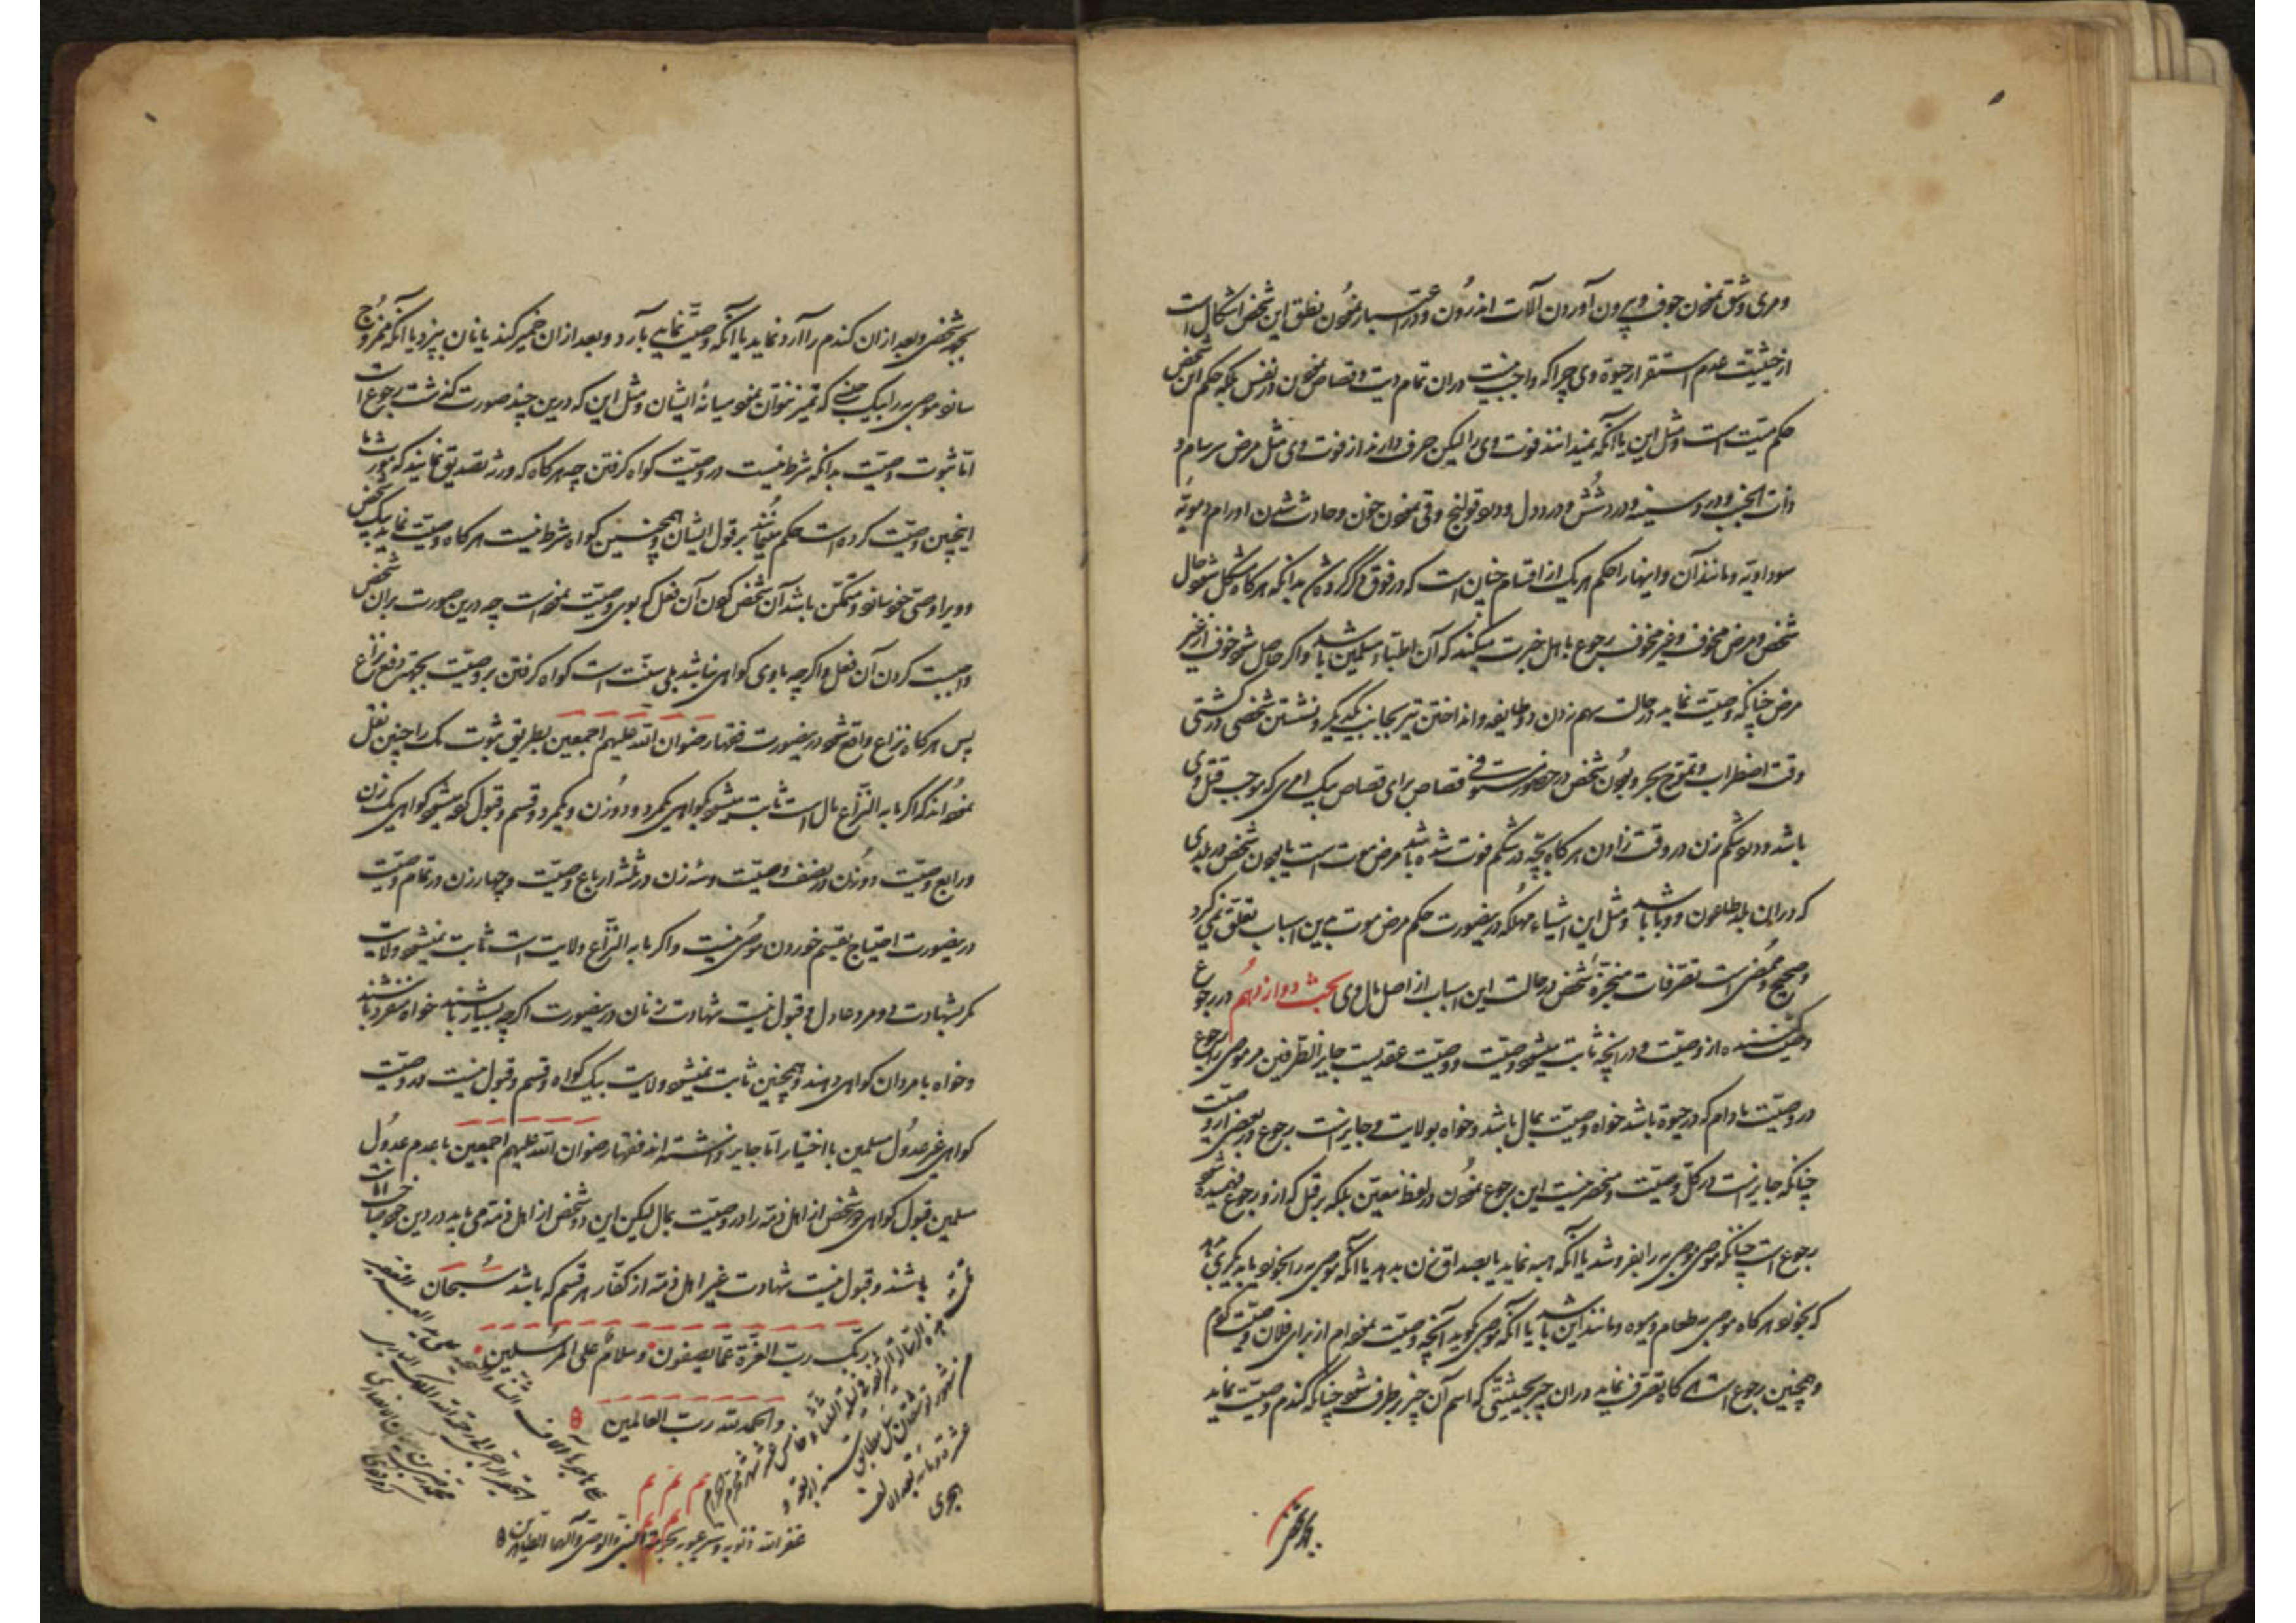 ومری وشق نمودن جوف و بیرون آوردن آلات اندرون و در اعتبار نمودن نطق این شخص اشکال است
از حیثیت عدم استقرار حیوة وی چرا که واجب است دران تمام دیت و قصاص نمودن در نفس بلکه حکم این شخص
حکم میّت است و مثل این یا آنکه نمیدانند فوت وی را لیکن حرف دارند از فوت وی مثل مرض سرسام و
ذات الجنب و درد سینه و درد شُش و درد دل و درد قولنج وقی نمودن خون و حادث شدن اورام دمویّه
سوداویّه و مانند آن و اینها را حکم هر یک از اقسام چنان است که در فوق ذکر کرده شد بدانکه هرگاه مشکل شود حال
شخص و مرض مخوف و غیر مخوف رجوع باهل خبرت میکنند که آن اطبّاء مسلمین باشد و اگر حاصل شود خوف از غیر
مرض چنانکه وصیّت نماید در حالت بهم زدن دو طایفه و انداختن تیر بجانب یکدیگر و نشستن شخصی در کشتی
وقت اضطراب و تموّج بحر و بودن شخص در حضور مستوفی قصاص برای قصاص بیک امری که موجب قتل وی
باشد و درد شکم زن در وقت زادن هرگاه بچّه در شکم فوت شده باشد مرض موت است یا بودن شخص در بلدی
که دران بلد طاعون و وبا باشد و مثل این اشیاء مهلکه درینصورت حکم مرض موت باین اسباب تعلّق نمی گیرد
و صحیح و مُمضی است تصرّفات منجّزهٔ شخص در حالت این اسباب از اصل مال وی بحث دوازدهُم در رجوع
وصیّت کننده از وصیّت و در آنچه ثابت میشود وصیّت و وصیّت عقدیست جایز الطرفین مر موصی را رجوع
در وصیّت مادام که در حیوة باشد خواه وصیّت بمال باشد و خواه بولایت و جایز است رجوع در بعضی از وصیّت
چنانکه جایز است در کلّ وصیّت و منحصر نیست این رجوع نمودن در لفظ معیّن بلکه هر فعل که ازو رجوع فهمیده شود
رجوع است چنانکه موصی موصی به را بفروشد یا آنکه هبه نماید یا بصداق زن بدهد یا آنکه موصی به را بخورد یا بدیگری دهد
که بخورد هرگاه موصی به طعام و میوه و مانند این باشد یا آنکه موصی گوید آنچه وصیّت نموده ام از برای فلان وصیّت کردم
و همچنین رجوع است هرگاه تصرّف نماید دران چیز بحیثیّتی که اسم آن چیز بر طرف شود چنانکه گندم وصیّت نماید
بجهة شخصی
بجهة شخصی و بعد ازان گندم را آرد نماید یا آنکه وصیّت نماید بآرد و بعد ازان خمیر کند یا نان بپزد یا آنکه ممزوج
سازد موصی به را بیک جنسی که تمیز نتوان نمود میانهٔ ایشان و مثل این که درین چند صورت گذشت رجوع است
امّا ثبوت وصیّت بدانکه شرط نیست در وصیّت گواه گرفتن چه هرگاه که ورثه تصدیق نمایند که مورث ما
اینچنین وصیّت کرده است حکم مینمایند بر قول ایشان و همچنین گواه شرط نیست هرگاه وصیّت نماید بیک شخص
و ویرا وصیّ خود سازد و متمکّن باشد آن شخص کردن آن فعل که بوی وصیّت نموده است چه درین صورت بران شخص
واجبست کردن آن فعل و اگر چه با وی گواهی نباشد بلی سنّت است گواه گرفتن بر وصیّت بجهة رفع نزاع
پس هرگاه نزاع واقع شود درینصورت فقهاء رضوان الله علیهم اجمعین بطریق ثبوت یک را چنین نقل
نموده اند که اگر ما به النّزاع مال است ثابت میشود بگواهی یکمرد و دو زن و یکمرد و قسم و قبول کرده میشود گواهی یک زن
در ربع وصیّت و دو زن در نصف وصیّت و سه زن در ثلثه ارباع وصیّت و چهار زن در تمام وصیّت
درینصورت احتیاج بقسم خوردن موصیٰ نیست و اگر ما به النّزاع ولایت است ثابت نمیشود ولایت
مگر بشهادت دو مرد عادل و قبول نیست شهادت زنان درینصورت اگر چه بسیار باشند خواه منفرد باشند
و خواه با مردان گواهی دهند و همچنین ثابت نمیشود ولایت بیک گواه و قسم و قبول نیست در وصیّت
گواهی غیر عدُول مسلمین با اختیار امّا جایز داشته اند فقهاء رضوان الله علیهم اجمعین با عدم عدُول
مسلمین قبول گواهی دو شخص از اهل ذمّه را در وصیّت بمال لیکن این دو شخص از اهل ذمّه می باید در دین خود با امانت
باشند و قبول نیست شهادت غیر اهل ذمّه از کفّار هر قسم که باشد سُبحان
ربّک ربّ العزّة عمّا یصفون وسلامٌ علی المرسلین
والحمد لله ربّ العالمین
هجری
غفر الله ذنوبه وستر عیوبه بحرمة النبیّ والوصیّ وآلهما الطاهرین